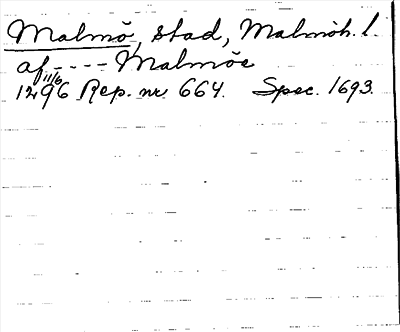 Malmö, stad, Malmöh. l.
af ---- Malmöe
1496 11/6 Rep. nr 664. Spec. 1693.